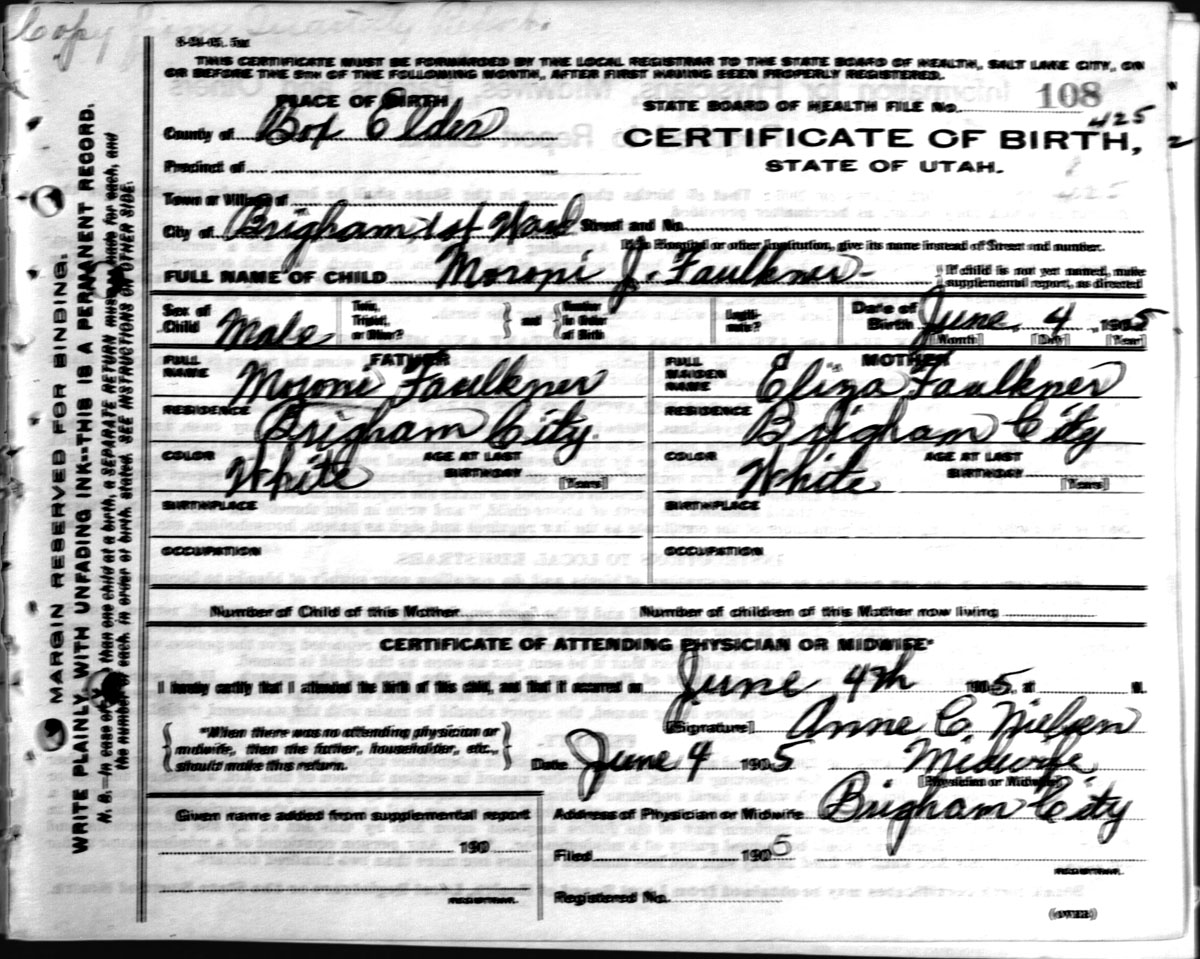 Copy from Quarterly Report.
8-28-05. 5M
THIS CERTIFICATE MUST BE FORWARDED BY THE LOCAL REGISTRAR TO THE STATE BOARD OF HEALTH, SALT LAKE CITY, ON
OR BEFORE THE 5TH OF THE FOLLOWING MONTH, AFTER FIRST HAVING BEEN PROPERLY REGISTERED.
PLACE OF BIRTH
STATE BOARD OF HEALTH FILE No. 108
425
County of Box Elder
CERTIFICATE OF BIRTH,
STATE OF UTAH.
Precinct of
425
Town or Village of
City of Brigham, 1st Ward Street and No.
If in Hospital or other institution, give its name instead of Street and number.
FULL NAME OF CHILD Moroni J. Faulkner
If child is not yet named, make
supplemental report, as directed
Sex of Child Male
Twin, Triplet, or Other?
and
Number in Order of Birth
Legitimate?
Date of Birth June 4, 1905
[Month] [Day] [Year]
FATHER
FULL NAME Moroni Faulkner
RESIDENCE Brigham City
COLOR White AGE AT LAST BIRTHDAY [Years]
BIRTHPLACE
OCCUPATION
MOTHER
FULL MAIDEN NAME Eliza Faulkner
RESIDENCE Brigham City
COLOR White AGE AT LAST BIRTHDAY [Years]
BIRTHPLACE
OCCUPATION
Number of Child of this Mother
Number of children of this Mother now living
CERTIFICATE OF ATTENDING PHYSICIAN OR MIDWIFE*
I hereby certify that I attended the birth of this child, and that it occurred on June 4th 1905, at M.
*When there was no attending physician or
midwife, then the father, householder, etc.,
should make this return.
[Signature] Anne C. Nielsen
Date June 4 1905 Midwife
[Physician or Midwife]
Given name added from supplemental report
190
REGISTRAR.
Address of Physician or Midwife Brigham City
Filed 1905
REGISTRAR.
Registered No.
(OVER)
MARGIN RESERVED FOR BINDING.
WRITE PLAINLY WITH UNFADING INK--THIS IS A PERMANENT RECORD.
N. B.--In case of more than one child at a birth, a SEPARATE RETURN must be made for each, and
the number of each, in order of birth, stated. SEE INSTRUCTIONS ON OTHER SIDE.